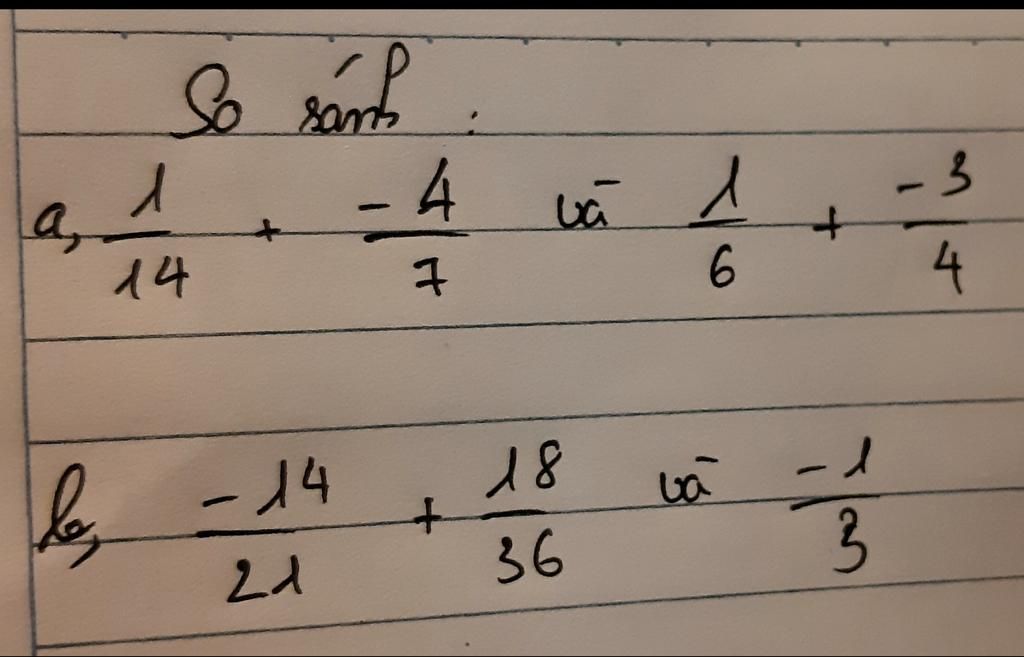 So sánh :
a, 1/14 + -4/7 và 1/6 + -3/4
b, -14/21 + 18/36 và -1/3